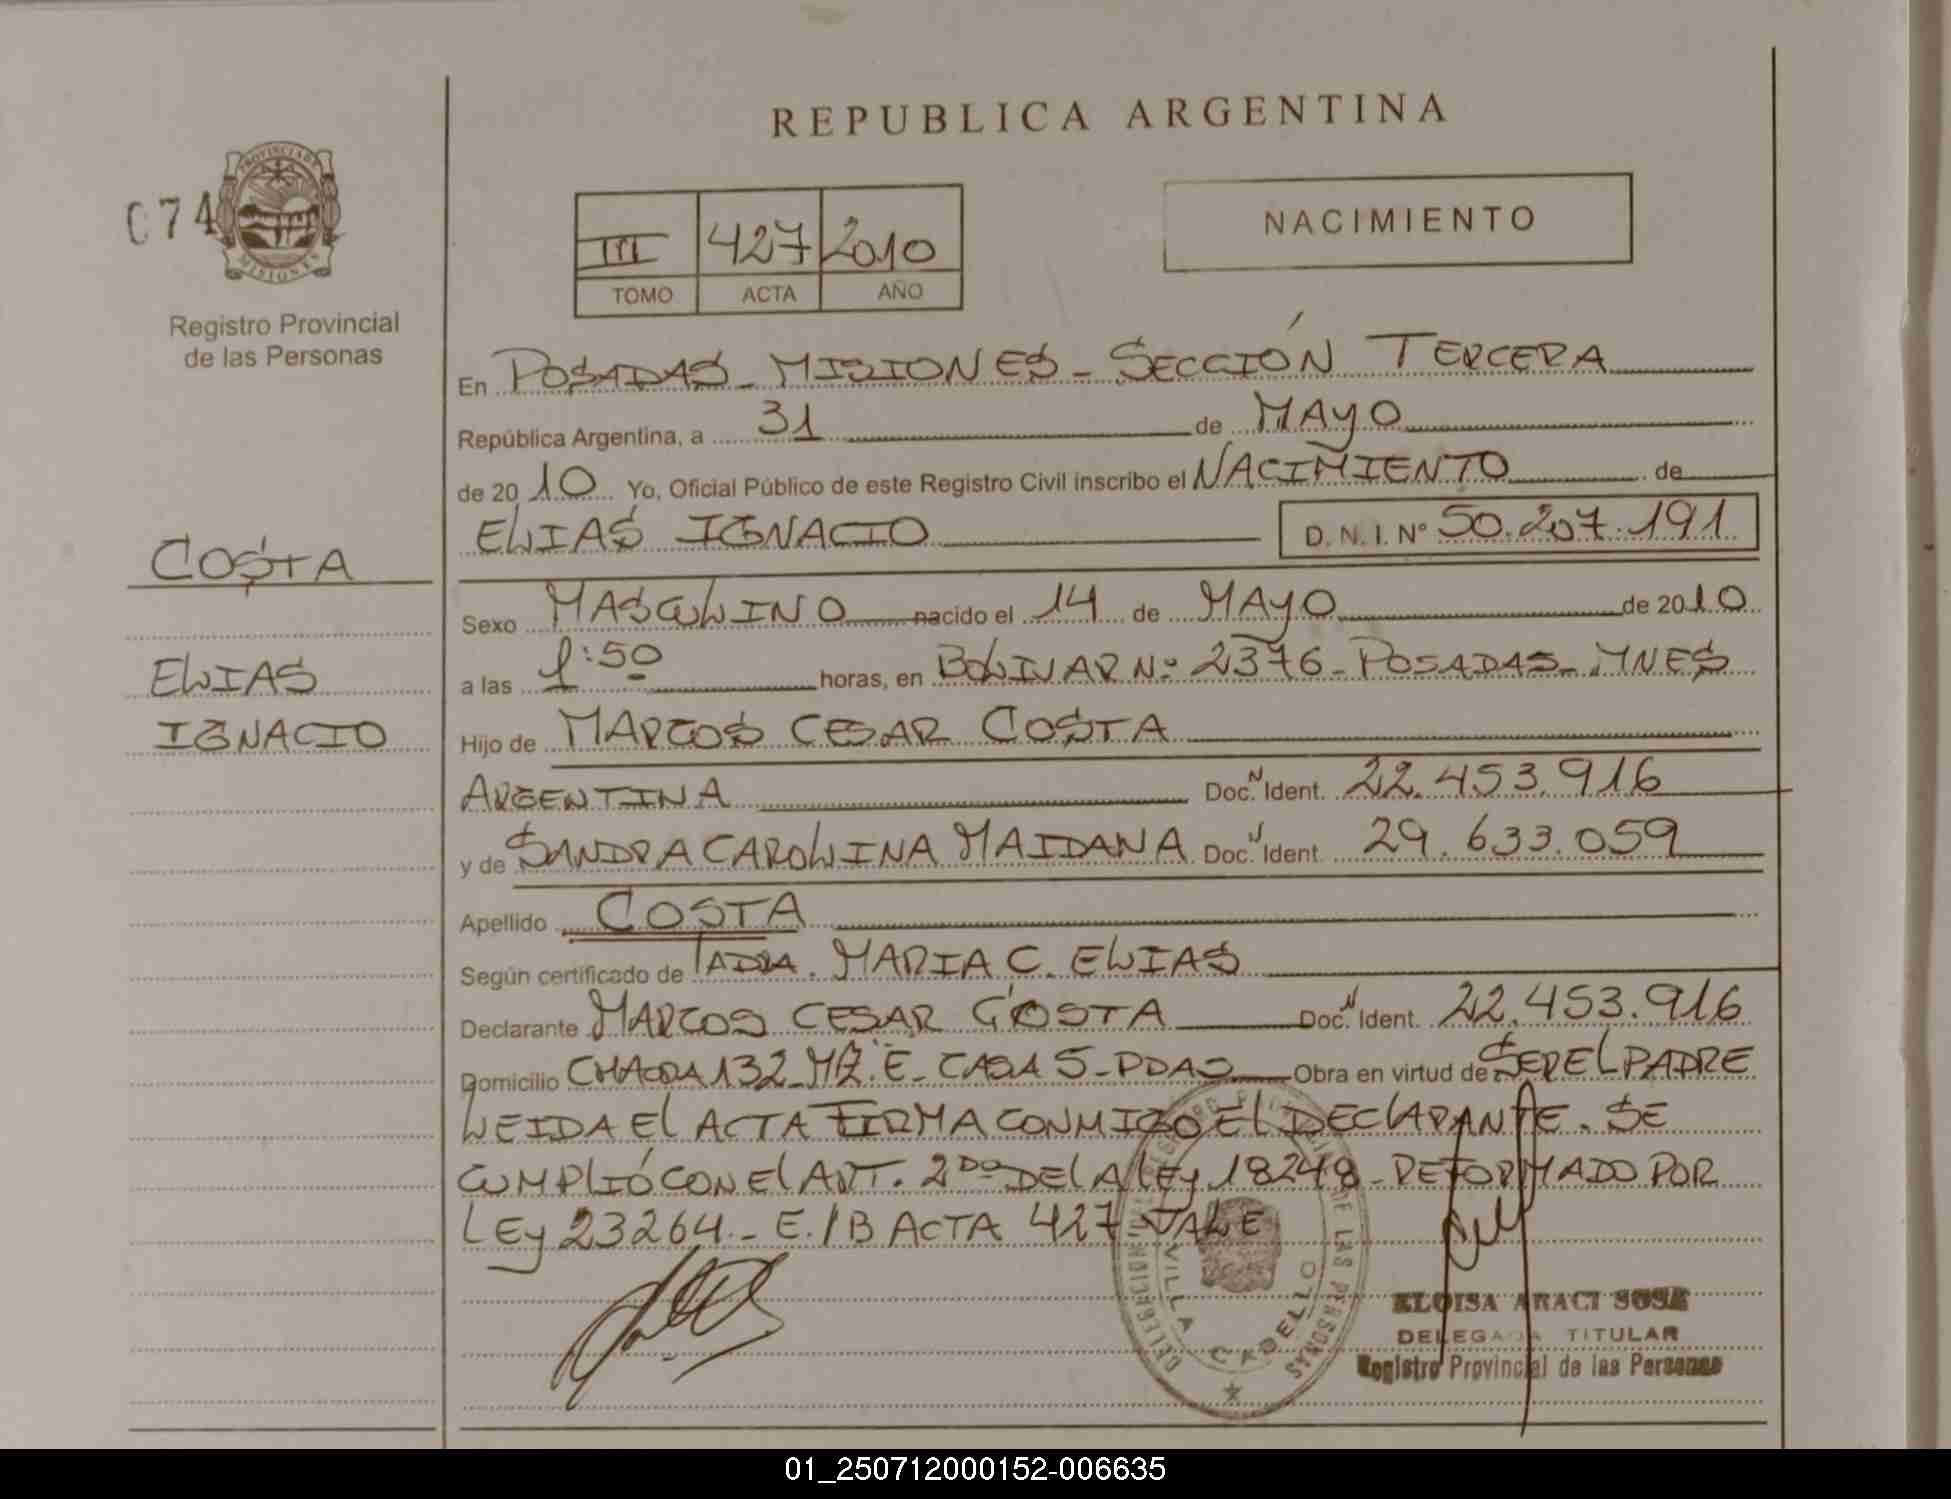 REPUBLICA ARGENTINA
074
PROVINCIA DE
MISIONES
Registro Provincial
de las Personas
III 427 2010
TOMO ACTA AÑO
NACIMIENTO
En POSADAS - MISIONES - SECCIÓN TERCERA
República Argentina, a 31 de MAYO
de 2010 Yo, Oficial Público de este Registro Civil inscribo el NACIMIENTO de
ELIAS IGNACIO D. N. I. Nº 50.207.191
COSTA
ELIAS
IGNACIO
Sexo MASCULINO nacido el 14 de MAYO de 2010
a las 1:50 horas, en BOLIVAR Nº 2376 - POSADAS - MNES
Hijo de MARCOS CESAR COSTA
ARGENTINA Doc. N Ident. 22.453.916
y de SANDRA CAROLINA MAIDANA Doc. N Ident. 29.633.059
Apellido COSTA
Según certificado de MARIA C. ELIAS
Declarante MARCOS CESAR COSTA Doc. N Ident. 22.453.916
Domicilio CHACRA 132 - MZ. E - CASA 5 - PDAS Obra en virtud de SER EL PADRE
LEIDA EL ACTA FIRMA CONMIGO EL DECLARANTE. SE
CUMPLIÓ CON EL ART. 2DO DE LA LEY 18248 - REFORMADO POR
LEY 23264. - E./B ACTA 427 VALE
DELEGACION
VILLA CABELLO
DE LAS PERSONAS
ELOISA ARACI SOSA
DELEGADA TITULAR
Registro Provincial de las Personas
01_250712000152-006635